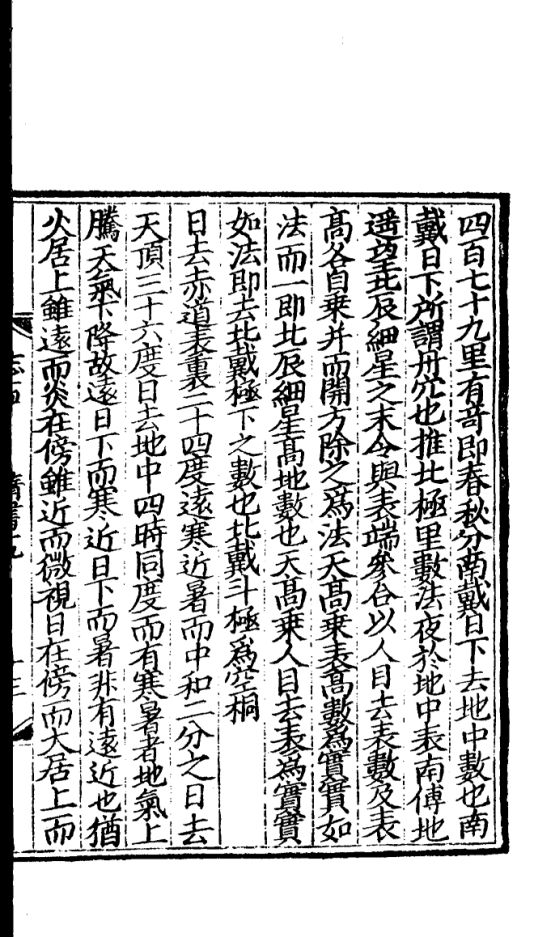 四百七十九里有奇即春秋分南戴日下去地中數也南
戴日下所謂丹穴也推北極里數法夜於地中表南傅地
遥望北辰細星之末令與表端參合以人目去表數及表
高各自乗并而開方除之爲法天髙乗表髙數爲實實如
法而一即北辰細星髙地數也天髙乗人目去表爲實實
如法即去北戴極下之數也北戴斗極爲空桐
日去赤道表裏二十四度遠寒近暑而中和二分之日去
天頂三十六度日去地中四時同度而有寒暑者地氣上
騰天氣下降故遠日下而寒近日下而暑非有遠近也猶
火居上雖遠而炎在傍雖近而微視日在傍而大居上而